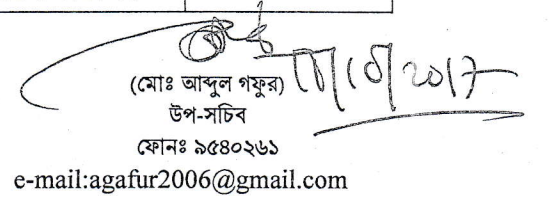 (মোঃ আব্দুল গফুর)
উপ-সচিব
ফোনঃ ৯৫৪০২৬১
e-mail:agafur2006@gmail.com